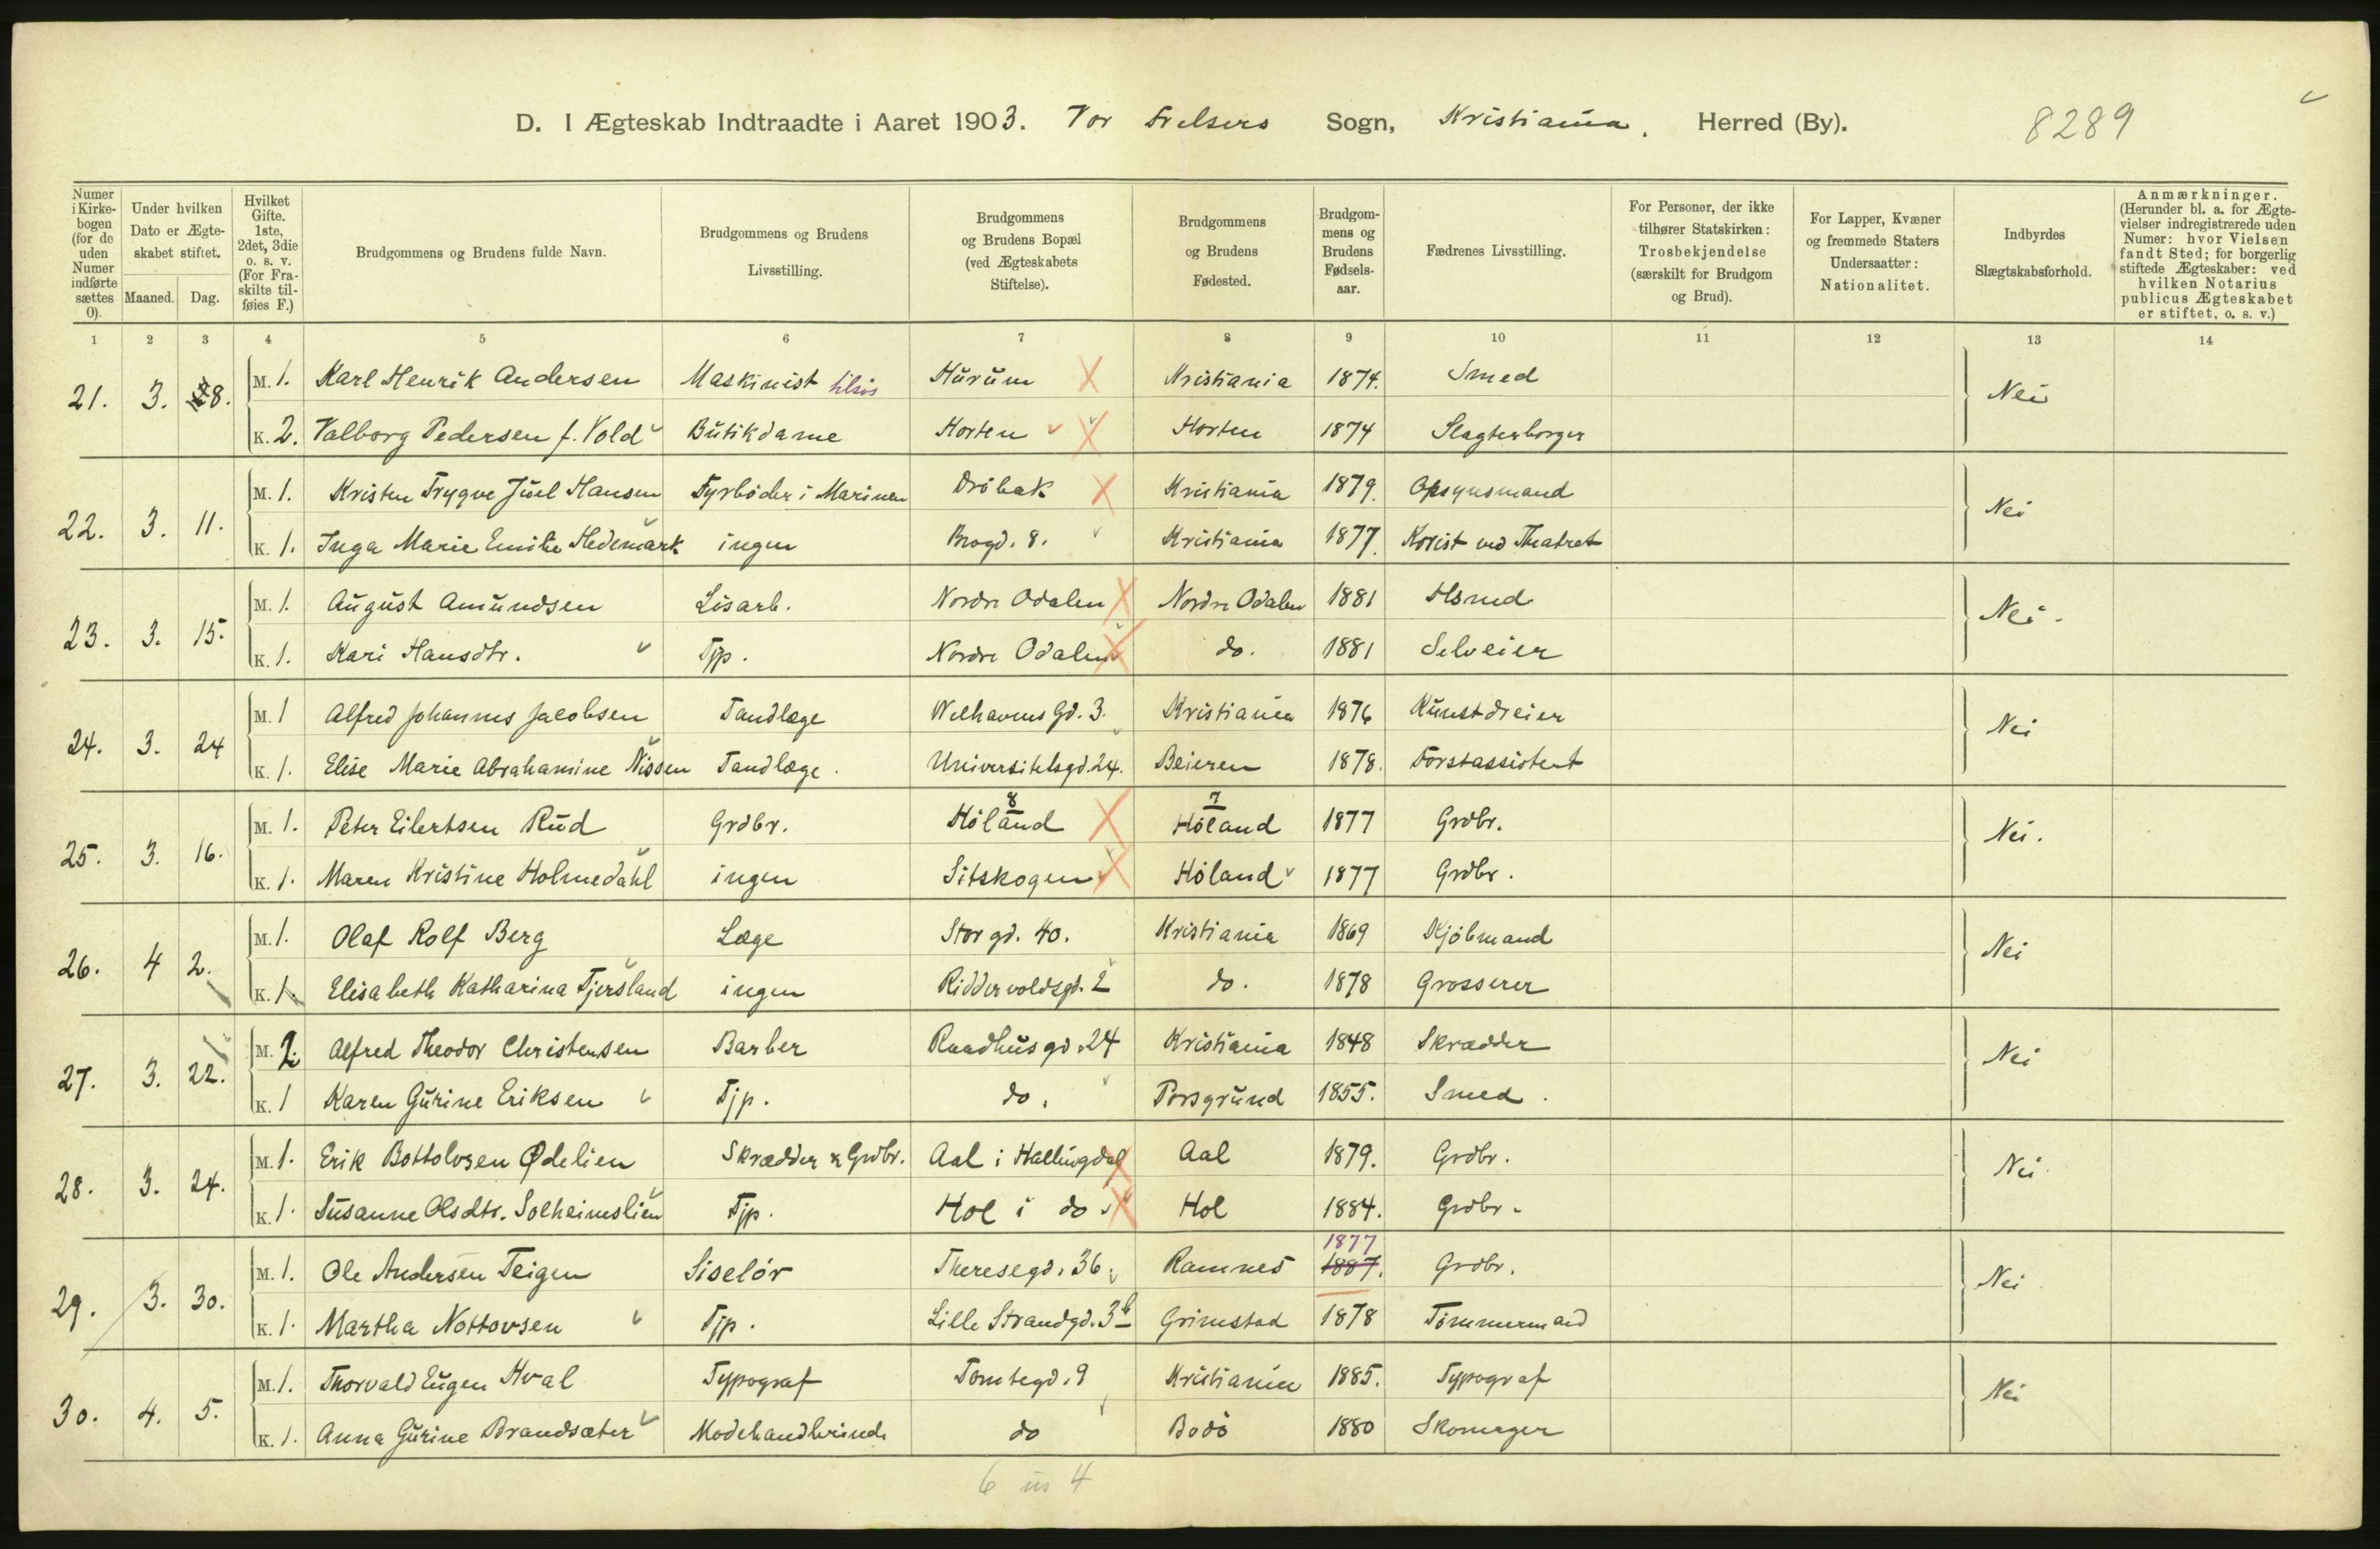 D. I Ægteskab Indtraadte i Aaret 1903. Vor Frelsers Sogn, Kristiania. Herred (By). 8289
Numer i Kirkebogen (for de uden Numer indførte sættes 0).
Under hvilken Dato er Ægteskabet stiftet.
Maaned. Dag.
Hvilket Gifte. 1ste, 2det, 3die o. s. v. (For Fraskilte tilføies F.)
Brudgommens og Brudens fulde Navn.
Brudgommens og Brudens Livsstilling.
Brudgommens og Brudens Bopæl (ved Ægteskabets Stiftelse).
Brudgommens og Brudens Fødested.
Brudgommens og Brudens Fødselsaar.
Fædrenes Livsstilling.
For Personer, der ikke tilhører Statskirken: Trosbekjendelse (særskilt for Brudgom og Brud).
For Lapper, Kvæner og fremmede Staters Undersaatter: Nationalitet.
Indbyrdes Slægtskabsforhold.
Anmærkninger. (Herunder bl. a. for Ægtevielser indregistrerede uden Numer: hvor Vielsen fandt Sted; for borgerlig stiftede Ægteskaber: ved hvilken Notarius publicus Ægteskabet er stiftet, o. s. v.)
1 2 3 4 5 6 7 8 9 10 11 12 13 14
21. 3. 8. M. 1. Karl Henrik Andersen Maskinist tilsøs Hurum Kristiania 1874. Smed Nei
K. 2. Valborg Pedersen f. Vold Butikdame Horten Horten 1874 Slagterborger
22. 3. 11. M. 1. Kristen Trygve Juel Hansen Fyrbøder i Marinen Drøbak Kristiania 1879. Opsynsmand Nei
K. 1. Inga Marie Emilie Hedemark ingen Brogd. 8. Kristiania 1877. Korist ved Theatret
23. 3. 15. M. 1. August Amundsen Løsarb. Nordre Odalen Nordre Odalen 1881 Hsmd Nei.
K. 1. Kari Hansdtr. Tjp. Nordre Odalen do. 1881 Selveier
24. 3. 24 M. 1 Alfred Johannes Jacobsen Tandlæge Welhavens Gd. 3. Kristiania 1876 Kunstdreier Nei
K. 1. Elise Marie Abrahamine Nissen Tandlæge. Universitetsgd. 24. Beieren 1878. Forstassistent
25. 3. 16. M. 1. Peter Eilertsen Rud Grdbr. 8 Høland 7 Høland 1877 Grdbr. Nei.
K. 1. Maren Kristine Holmedahl ingen Sitskogen Høland 1877 Grdbr.
26. 4 2. M. 1. Olaf Rolf Berg Læge Storgd. 40. Kristiania 1869 Kjøbmand Nei
K. 1. Elisabeth Katharina Fjersland ingen Riddervoldsgd. 2 do. 1878 Grosserer
27. 3. 22. M. 2. Alfred Theodor Christensen Barber Raadhusgd. 24 Kristiania 1848 Skrædder Nei
K. 1 Karen Gurine Eriksen Tjp. do. Porsgrund 1855. Smed.
28. 3. 24. M. 1. Erik Bottolvsen Ødelien Skrædder & Grdbr. Aal i Hallingdal Aal 1879. Grdbr. Nei
K. 1. Susanne Olsdtr. Solheimslien Tjp. Hol i do. Hol 1884. Grdbr.
29. 3. 30. M. 1. Ole Andersen Teigen Siselør Theresegd. 36. Ramnes 1877 1887. Grdbr. Nei
K. 1. Martha Nottovsen Tjp. Lille Strandgd. 3 b Grimstad 1878 Tømmermand
30. 4. 5. M. 1. Thorvald Eugen Hval Typograf Tomtegd. 9 Kristiania 1885. Typograf Nei
K. 1. Anna Gurine Brandsæter Modehandlerinde do Bodø 1880 Skomager
6 4